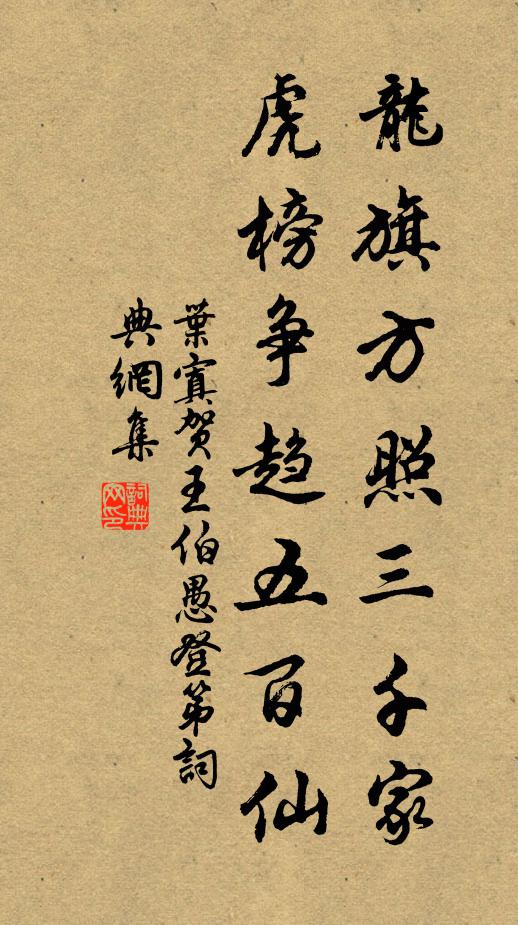 龍旗方照三千家
虎榜争趋五百仙
葉寘賀王伯愚登第詞
典網集
詞典网印